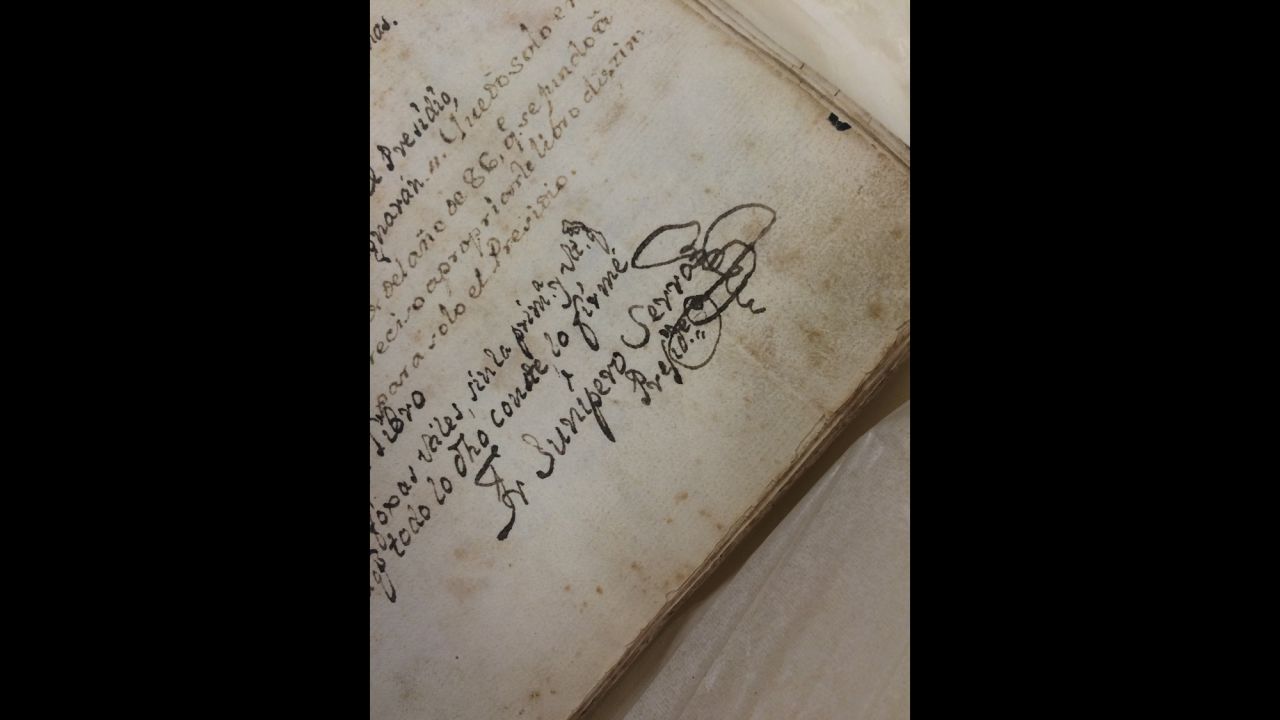 nas.
el Presidio,
gnarán.. Quedó solo en
del año de 86, q.e se pundoa
preciso apropriarle libro distin
para solo el Presidio.
Libro
foxas utiles, sin la prim.a y ult.a
todo lo dho conste lo firmé
Fr Junipero Serra
Presid.te